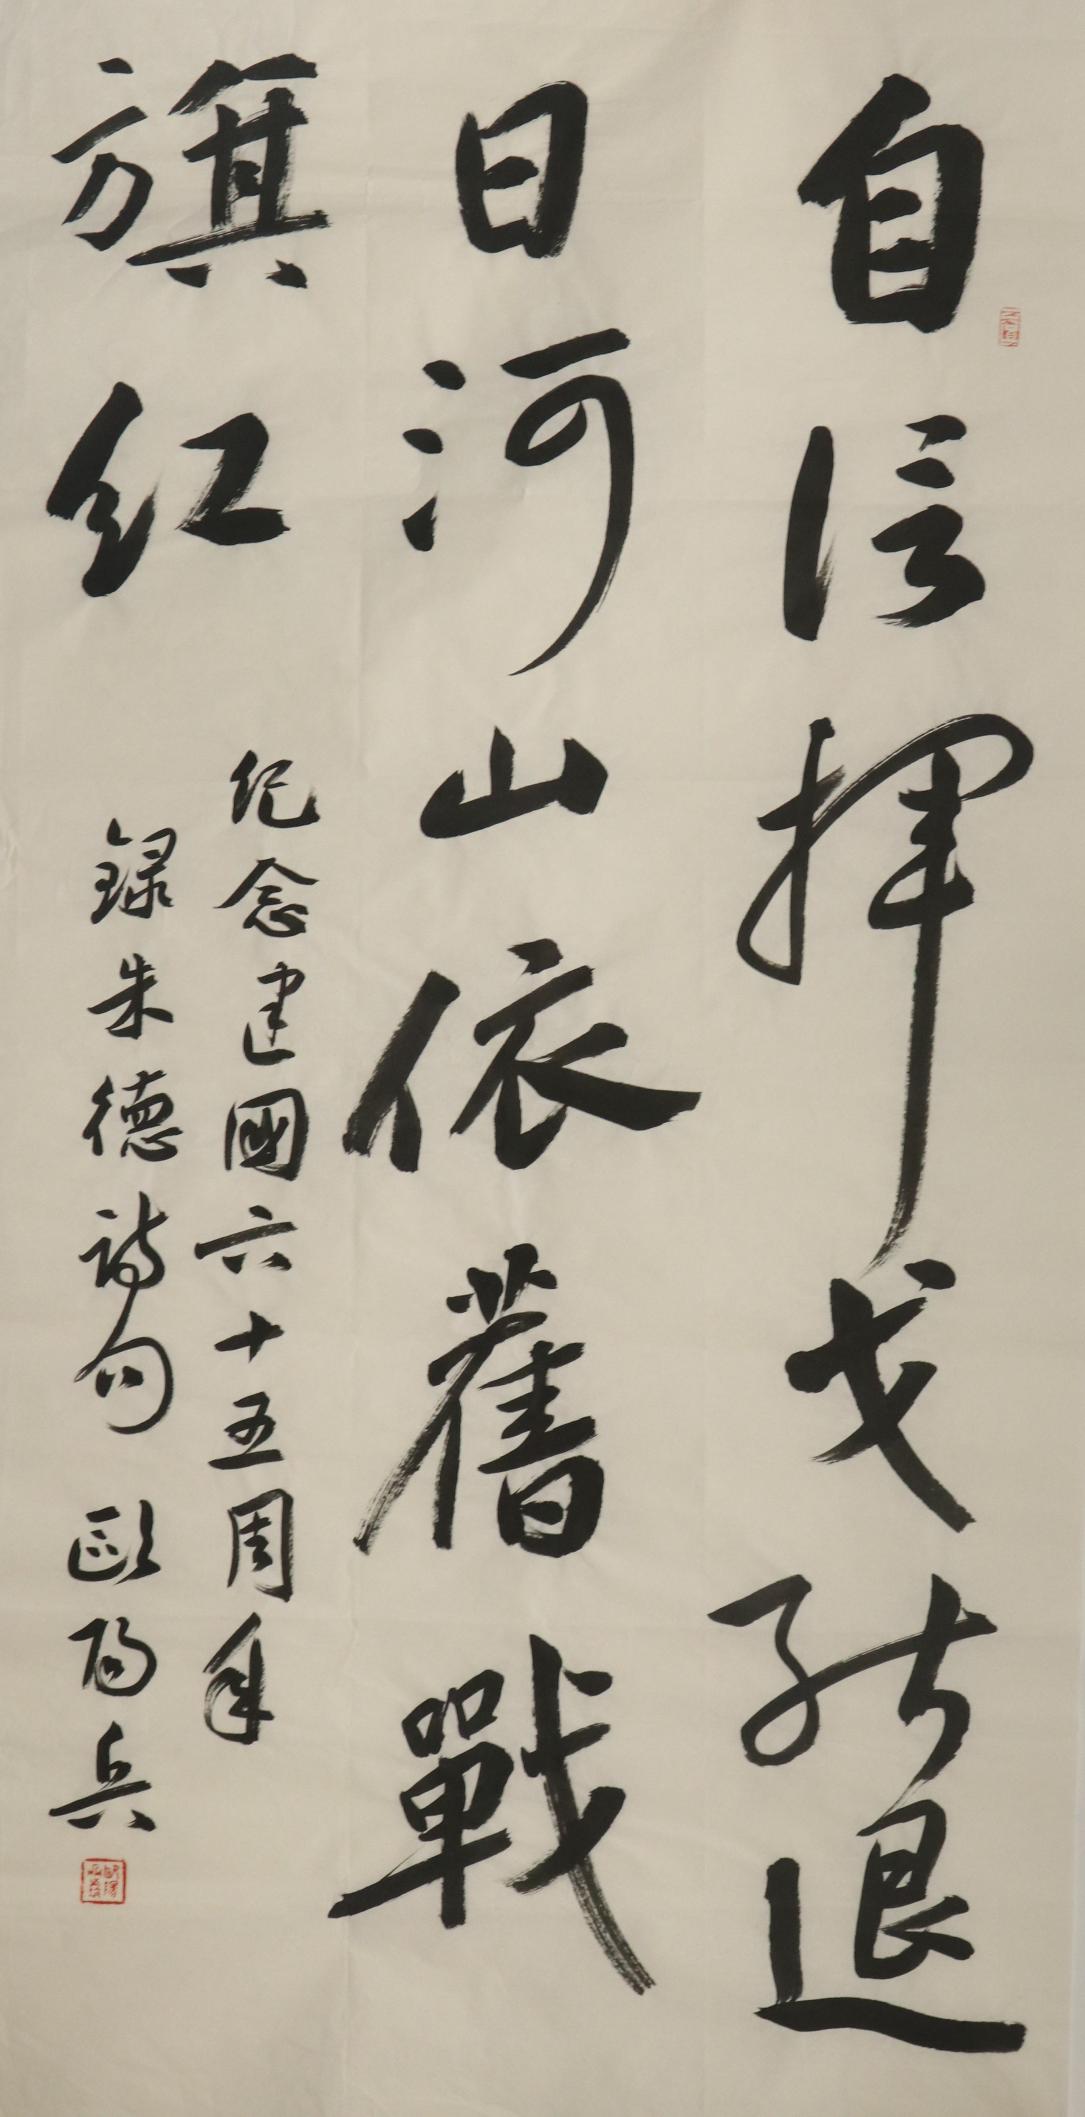 自信揮戈能退
日河山依舊戰
旗红
纪念建國六十五周年
録朱德詩句 歐陽兵